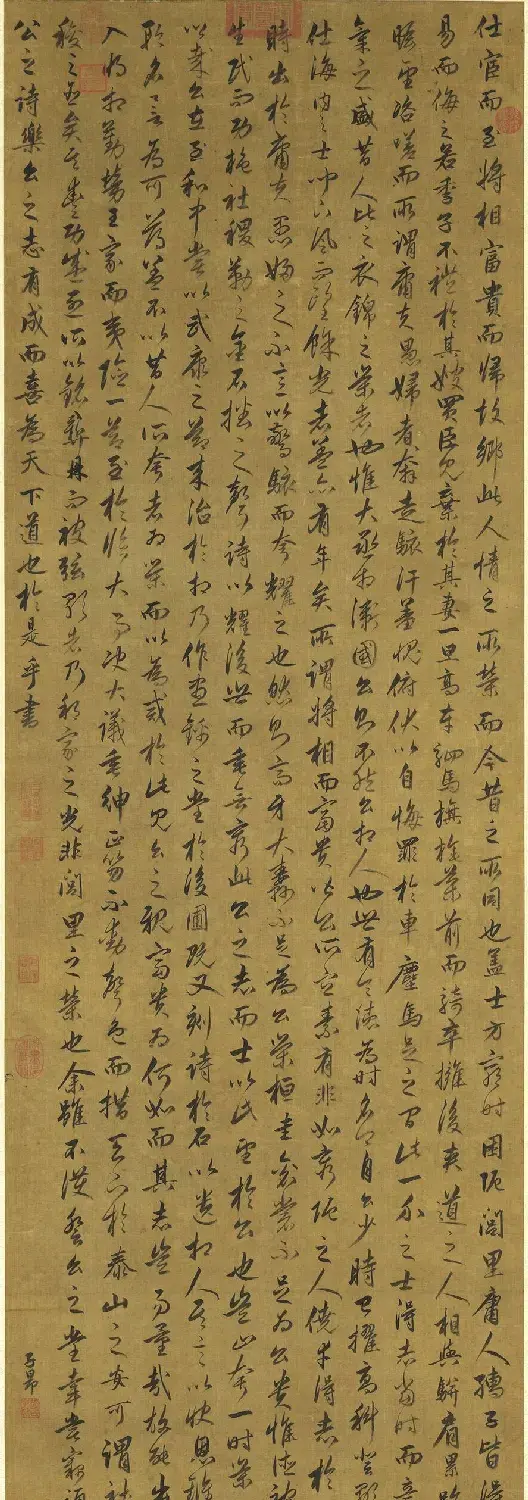 仕宦而至將相富貴而歸故鄉此人情之所榮而今昔之所同也蓋士方窮時困阨閭里庸人孺子皆得
易而侮之若季子不禮於其嫂買臣見棄於其妻一旦高車駟馬旗旄導前而騎卒擁後夾道之人相與駢肩累跡
瞻望咨嗟而所謂庸夫愚婦者奔走駭汗羞愧俯伏以自悔罪於車塵馬足之間此一介之士得志當時而意
氣之盛昔人比之衣錦之榮者也惟大丞相衛國公則不然公相人也世有令德為時名卿自公少時已擢高科登顯
仕海內之士聞下風而望餘光者蓋亦有年矣所謂將相而富貴皆公所宜素有非如窮阨之人僥倖得志於
時出於庸夫愚婦之不意以驚駭而夸耀之也然則高牙大纛不足為公榮桓圭袞裳不足為公貴惟德被
生民而功施社稷勒之金石播之聲詩以耀後世而垂無窮此公之志而士以此望於公也豈止夸一時榮
哉公在至和中嘗以武康之節來治於相乃作晝錦之堂於後圃既又刻詩於石以遺相人其言以快恩讎
矜名譽為可薄蓋不以昔人所夸者為榮而以為戒於此見公之視富貴為何如而其志豈易量哉故能出
入將相勤勞王家而夷險一節至於臨大事決大議垂紳正笏不動聲色而措天下於泰山之安可謂社
稷之臣矣其豐功盛烈所以銘彝鼎而被弦歌者乃邦家之光非閭里之榮也余雖不獲登公之堂幸嘗竊誦
公之詩樂公之志有成而喜為天下道也於是乎書
子昂